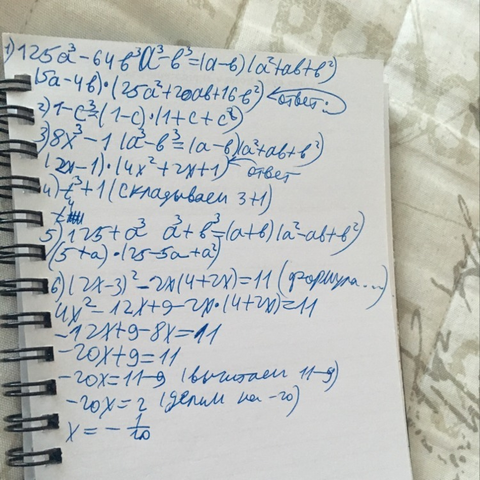 1) 125a³ - 64b³ a³-b³ = (a-b)(a²+ab+b²)
(5a-4b)·(25a²+20ab+16b²) ← ответ
2) 1-c³ = (1-c)·(1+c+c²)
3) 8x³ - 1 (a³-b³ = (a-b)(a²+ab+b²)
(2x-1)·(4x²+2x+1) ← ответ
4) t³+1 (складываем 3+1)
t⁴
5) 125+a³ a³+b³ = (a+b)(a²-ab+b²)
(5+a)·(25-5a+a²)
6) (2x-3)² - 2x(4+2x) = 11 (формула...)
4x² - 12x+9 - 2x·(4+2x) = 11
-12x+9-8x = 11
-20x+9 = 11
-20x = 11-9 (вычитаем 11-9)
-20x = 2 (делим на -20)
x = - 1/10